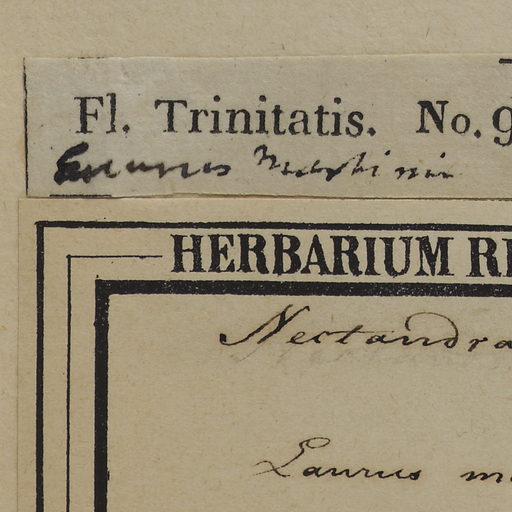 Fl. Trinitatis. No. 9
Laurus
HERBARIUM RE
Nectandra
Laurus m